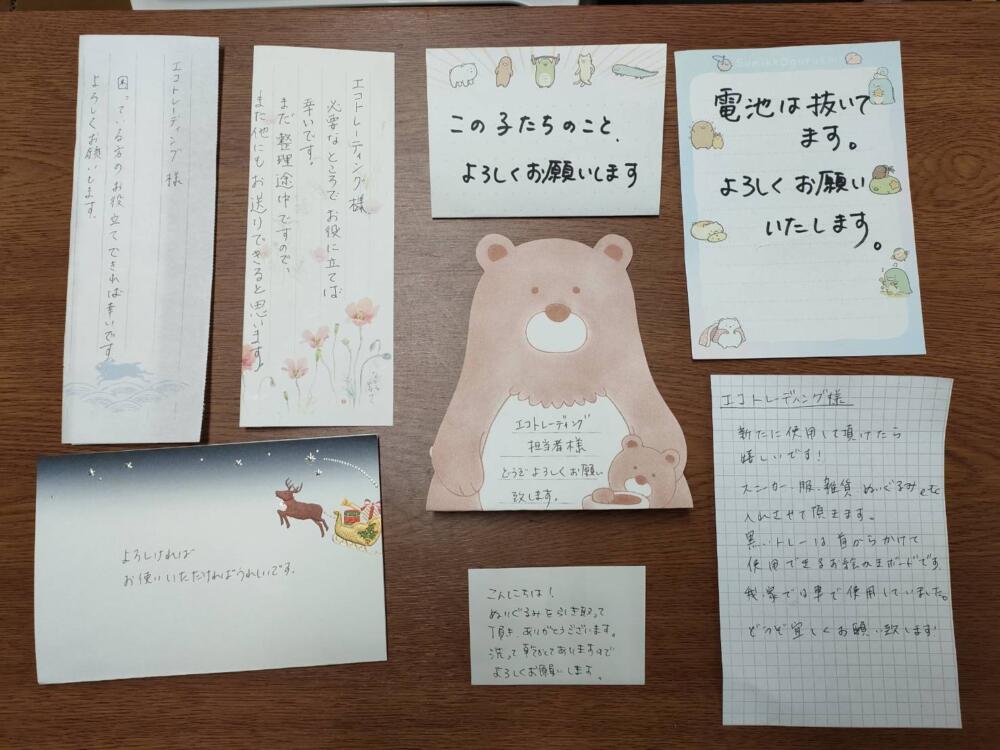 エコトレーディング 様
困っている方のお役立てできれば幸いです。
よろしくお願いします。
エコトレーディング様
必要なところでお役に立てば
幸いです。
まだ整理途中ですので、
また他にもお送りできると思います。
この子たちのこと、
よろしくお願いします
Sumikkogurashi
電池は抜いて
ます。
よろしくお願い
いたします。
エコトレーディング
担当者様
どうぞよろしくお願い
致します。
よろしければ
お使いいただければうれしいです。
こんにちは!
ぬいぐるみを引き取って
頂き、ありがとうございます。
洗って乾かしてありますので
よろしくお願いします。
エコトレーディング様
新たに使用して頂けたら
嬉しいです!
スニーカー、服、雑貨、ぬいぐるみetc
入れさせて頂きます。
黒いトレーは首からかけて
使用できるお絵かきボードです。
我家では車で使用していました。
どうぞ宜しくお願い致します